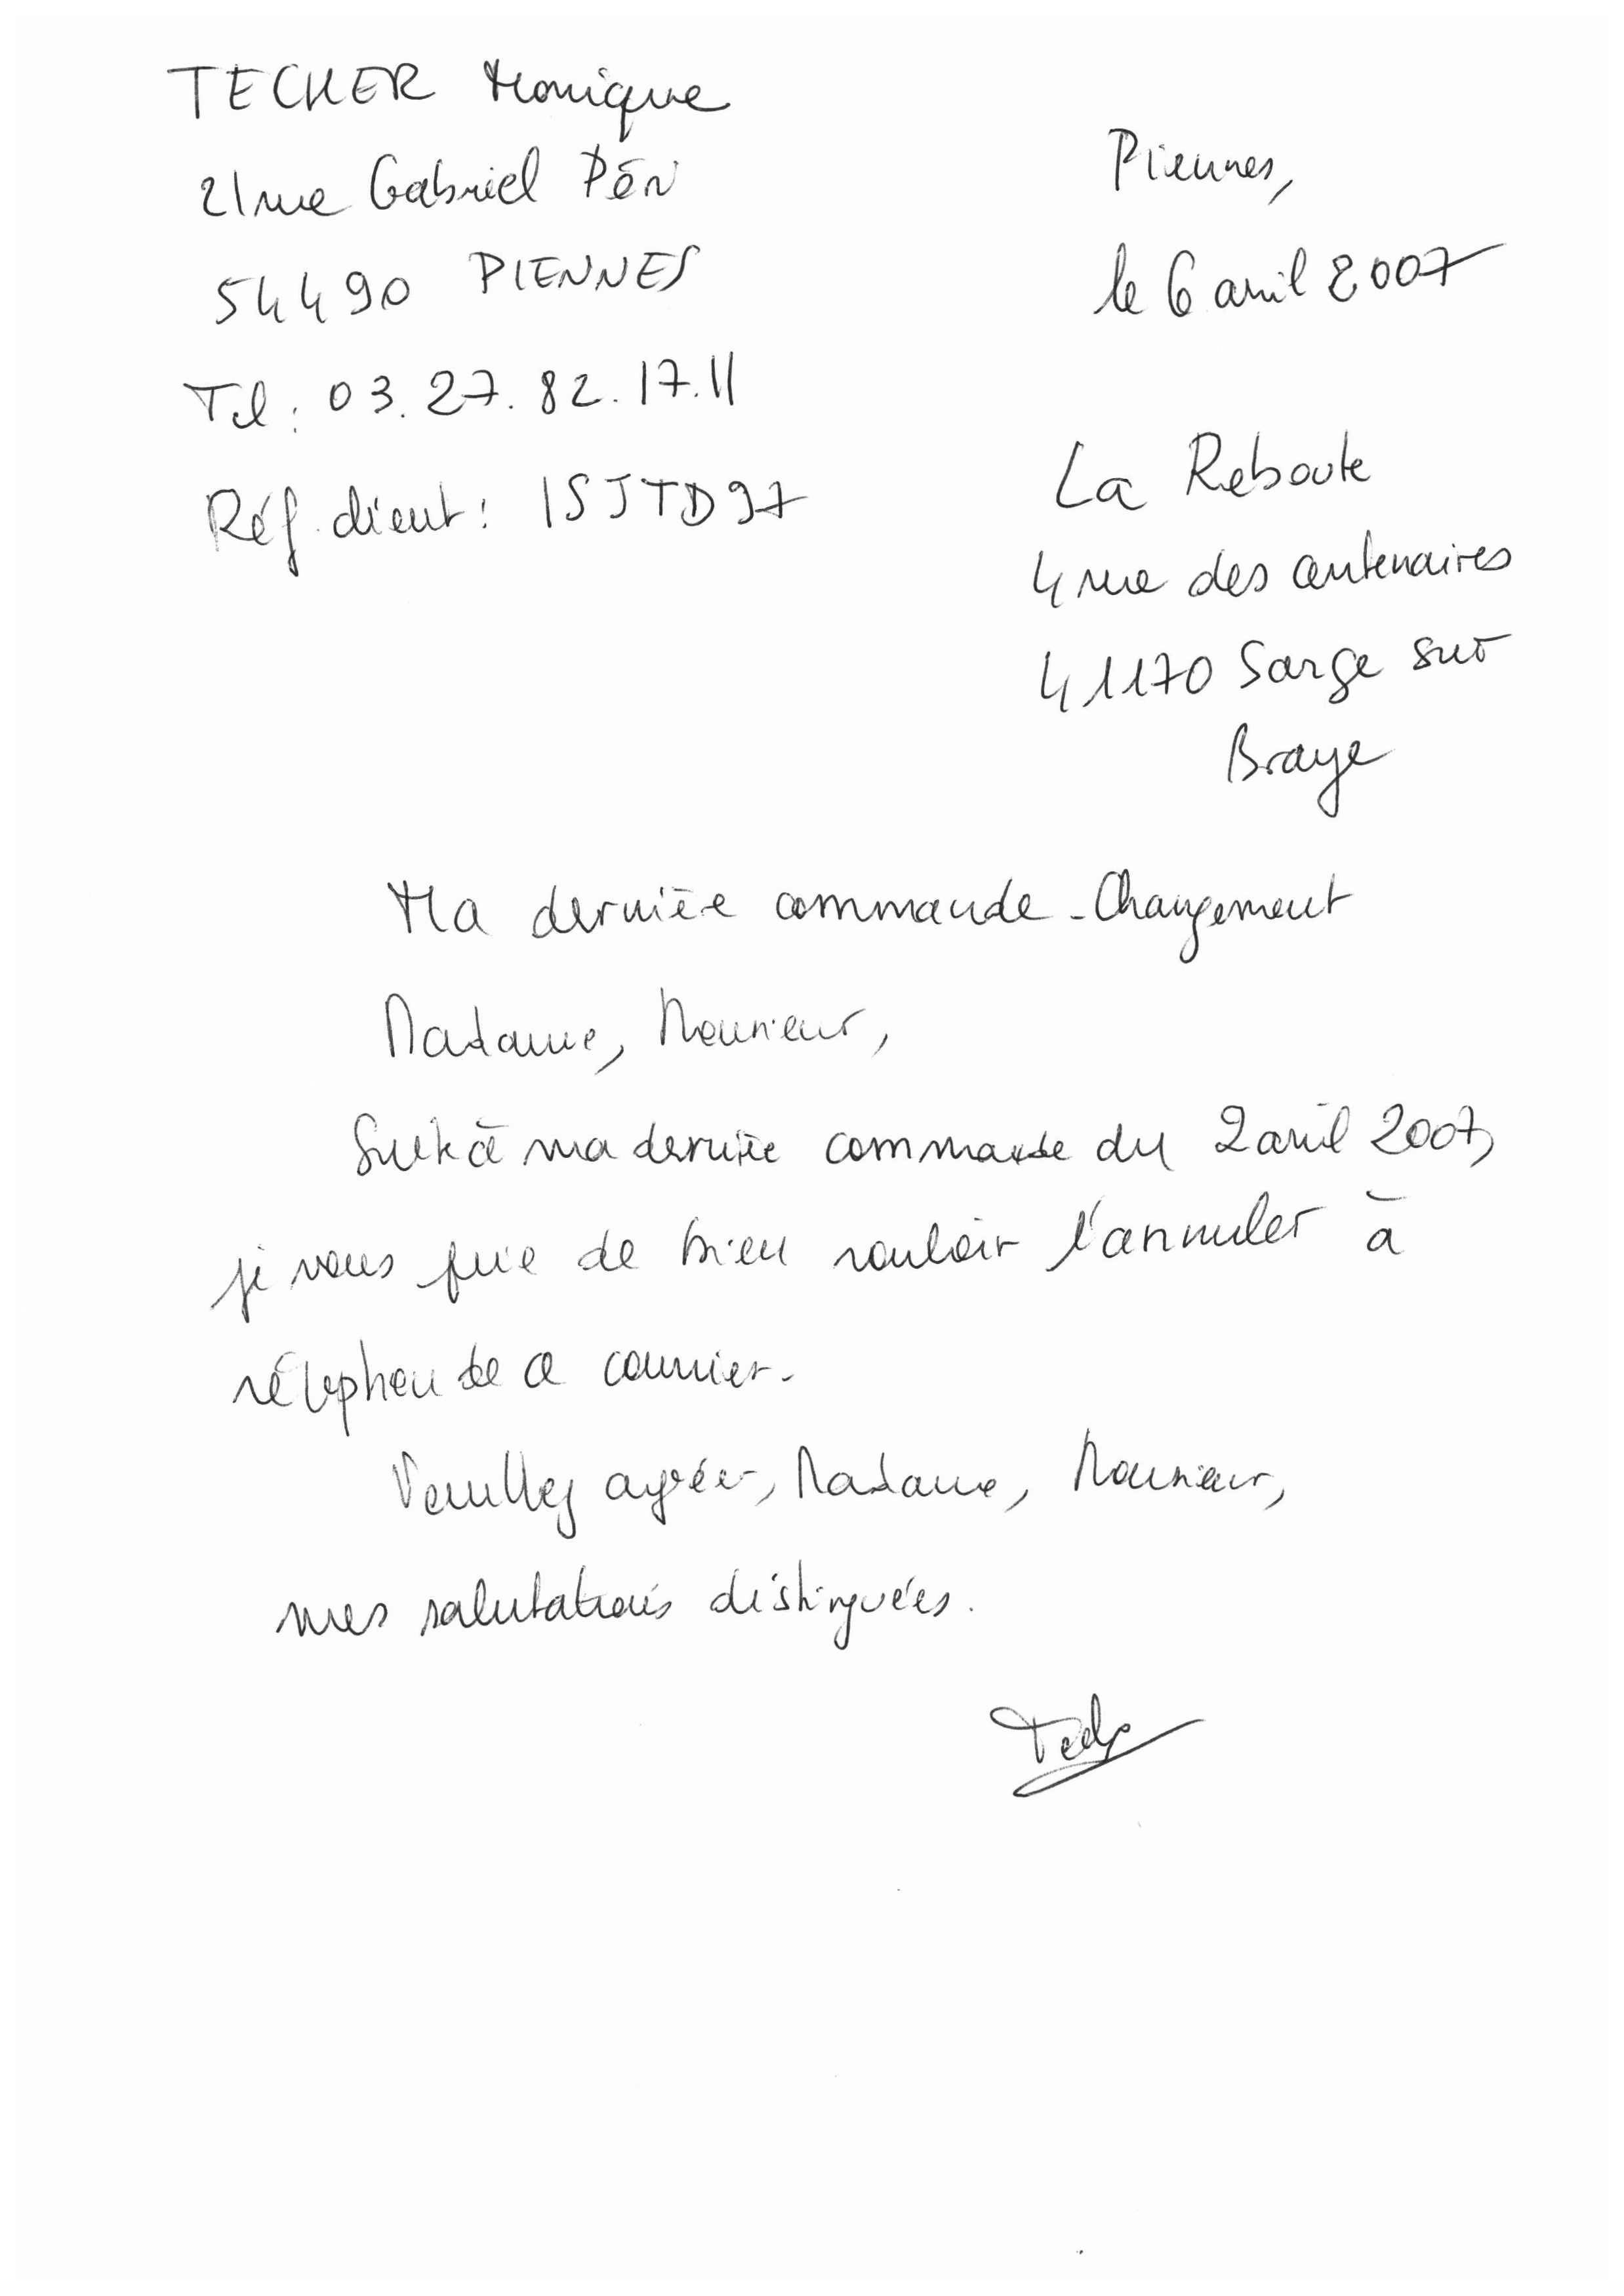 TECHER Monique
21 rue Gabriel Péri
54490 PIENNES
Tel : 03.27.82.17.11
Réf. client : ISJTD97
Piennes,
le 6 avril 2007
La Reboute
4 rue des centenaires
41170 Sarge sur
Braye
Ma dernière commande - Changement
Madame, Monsieur,
Suite à ma dernière commande du 2 avril 2007,
je vous prie de bien vouloir l'annuler à
réception de ce courrier.
Veuillez agréer, Madame, Monsieur,
mes salutations distinguées.